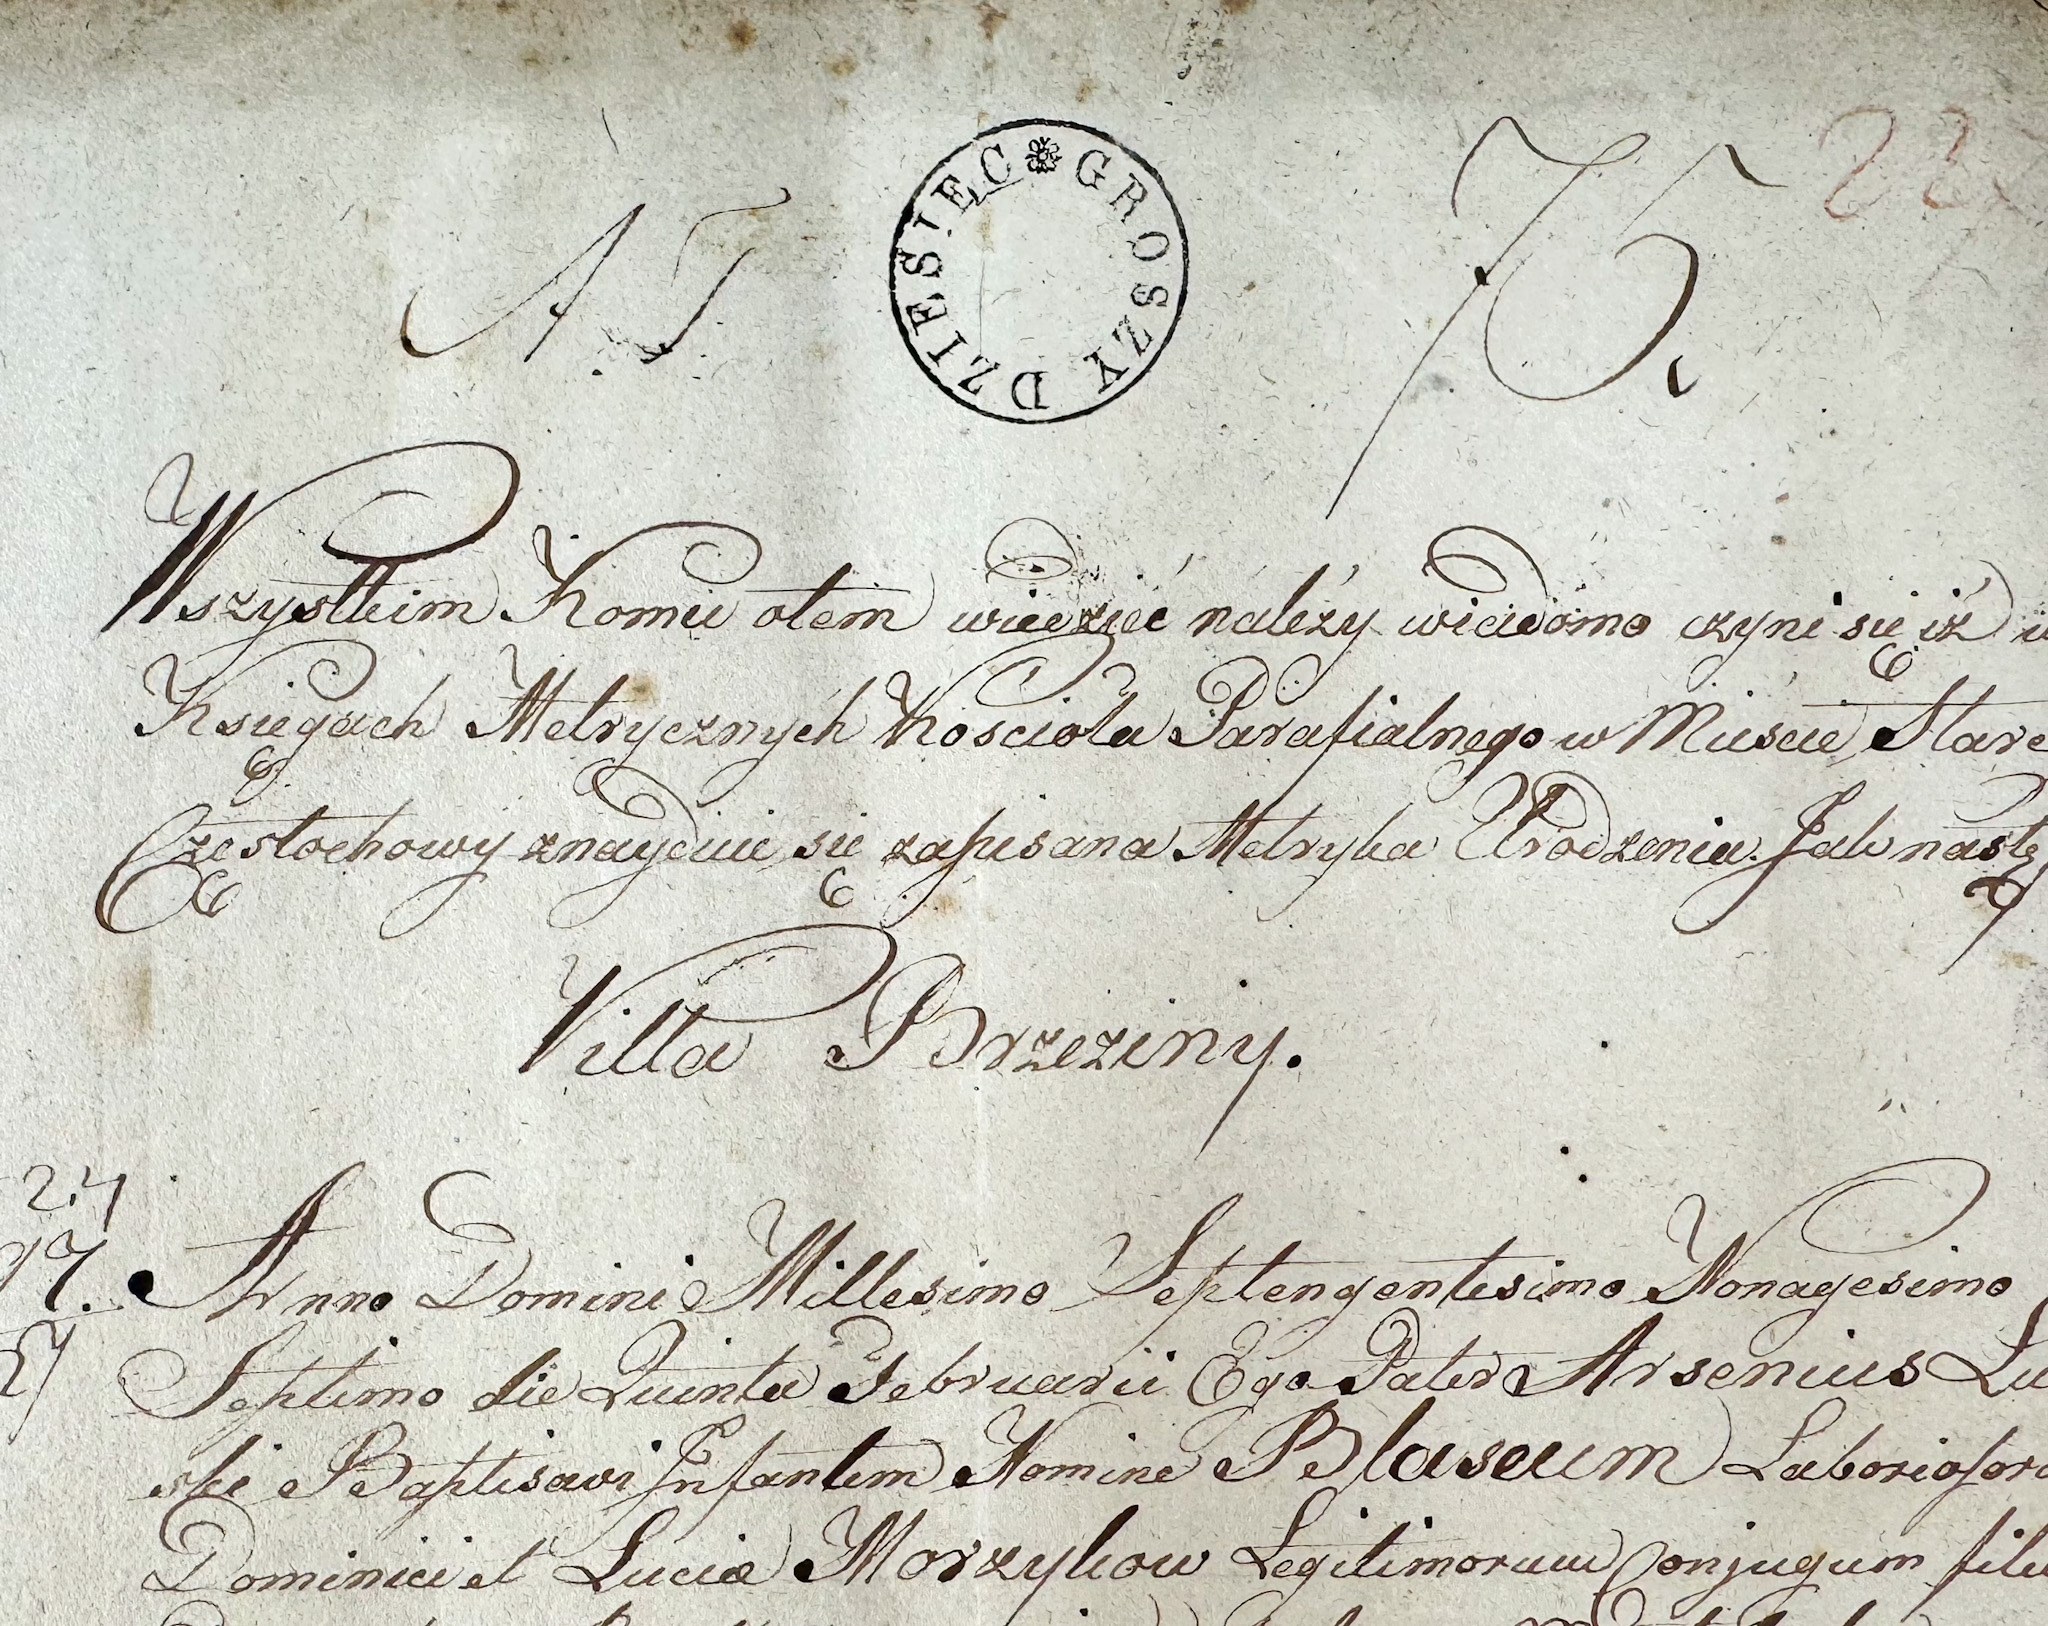 N 7
GROSZY DZIESIĘC
75.
Wszystkim Komu otem wiedzieć należy wiadomo czyni się iż w
Księgach Metrycznych Kościoła Parafialnego w Mieście Stare
Częstochowy znayduie się zapisana Metryka Urodzenia Jak nastę
Villa Brzeziny.
Anno Domini Millesimo Septengentesimo Nonagesimo
Septimo die Quinta Februarii Ego Pater Arsenius Lu
ski Baptisavi Infantem Nomine Blaseum Laborioforo
Dominici et Luciæ Morzykow Legitimorum Conjugum filiu